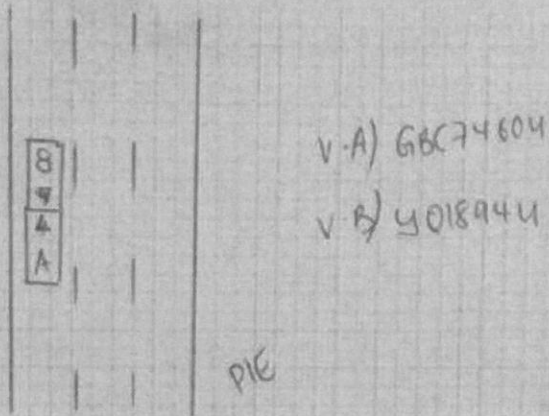 B
A
V.A) GBC7460U
V B) YQ1894U
PIE